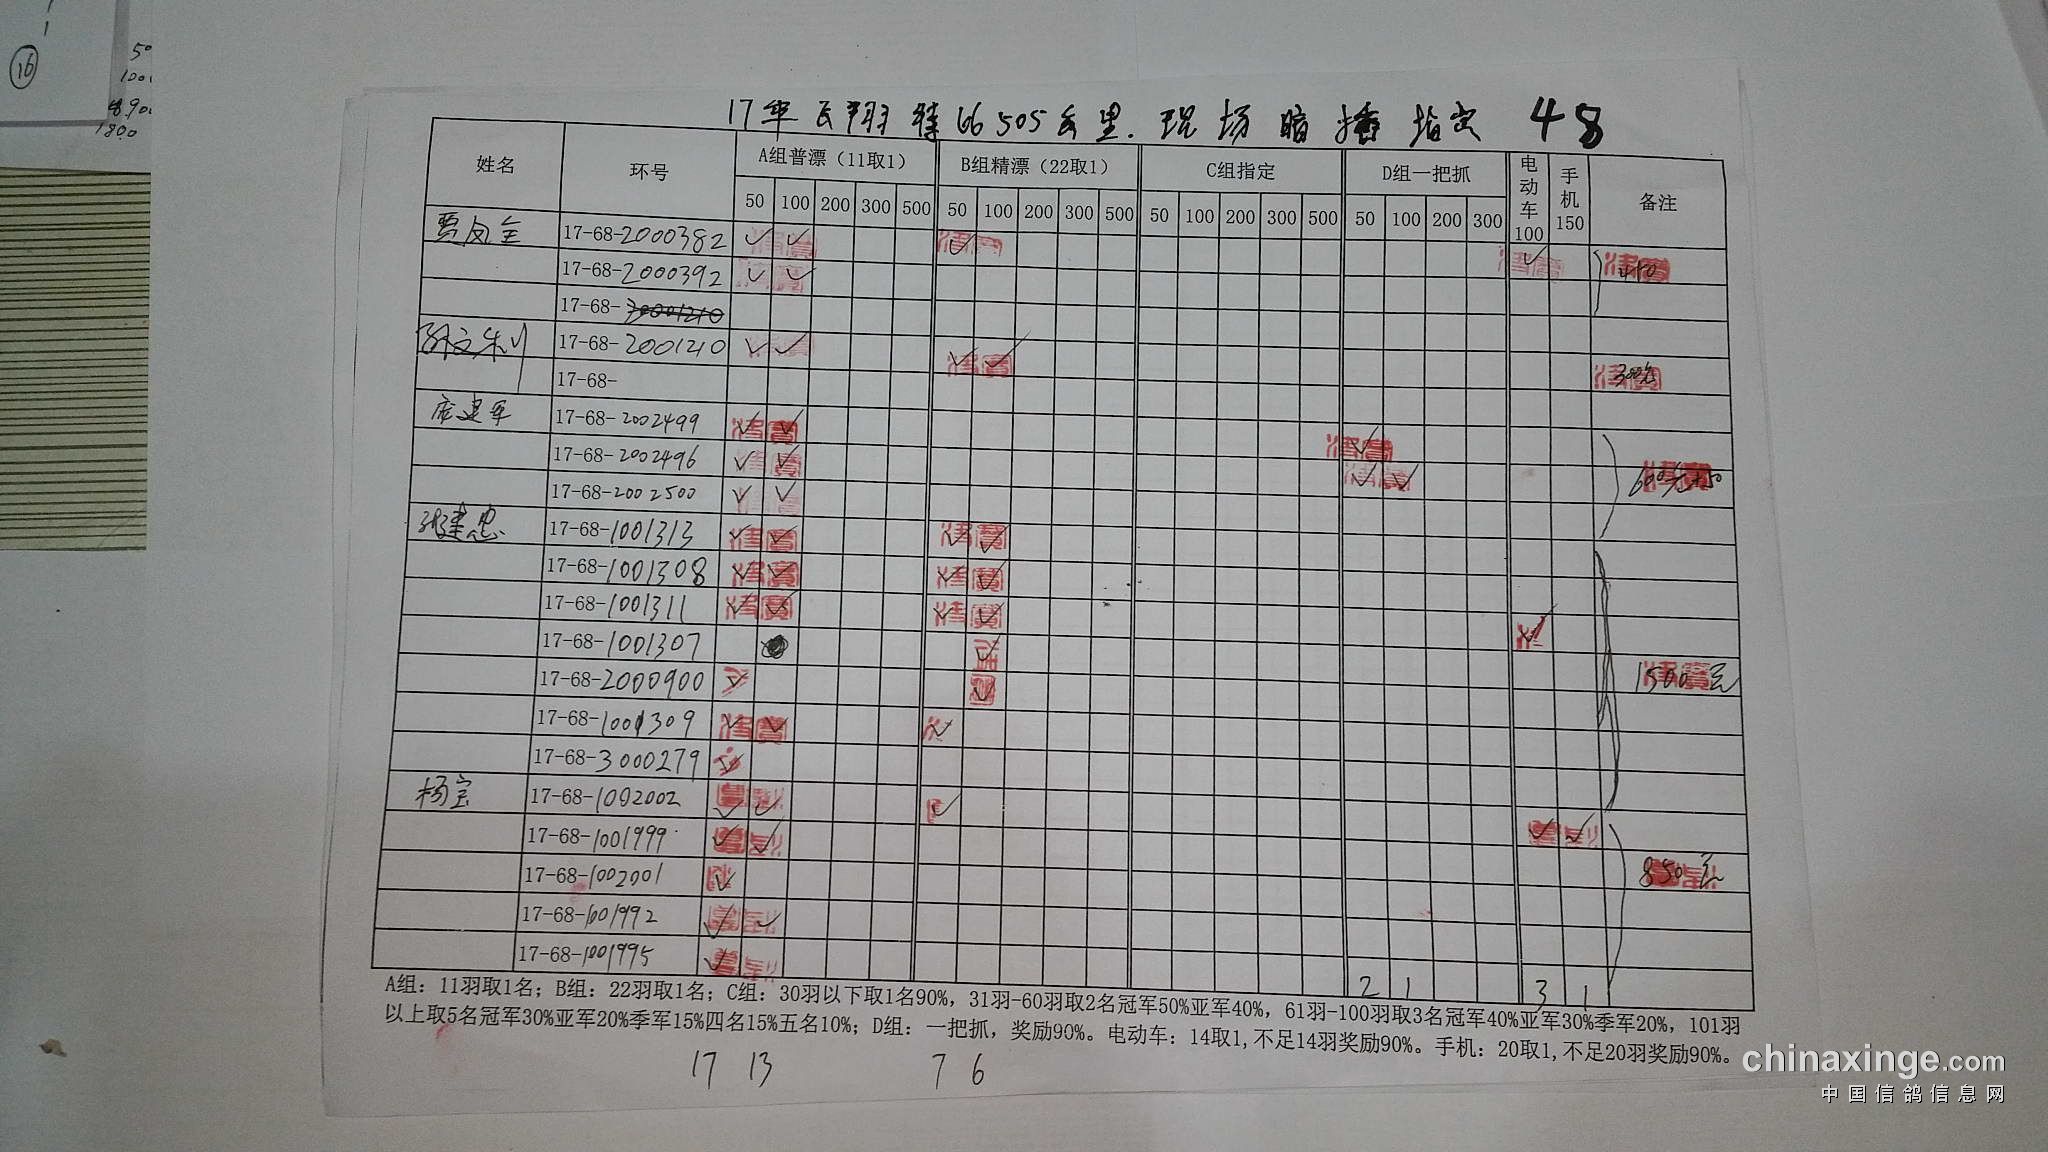 16
50
100
890
1800
17年飞翔特比505公里.现场暗插指定 48
姓名 环号 A组普漂（11取1） B组精漂（22取1） C组指定 D组一把抓 电动车100 手机150 备注
50 100 200 300 500 50 100 200 300 500 50 100 200 300 500 50 100 200 300
贾凤全 17-68-2000382 ✓ ✓ ✓ ✓
17-68-2000392 ✓ ✓
17-68-
17-68-2001210 ✓ ✓ ✓ ✓ 300元
17-68-
庞建军 17-68-2002499 ✓ ✓ ✓
17-68-2002496 ✓ ✓ ✓ ✓
17-68-2002500 ✓ ✓
张建忠 17-68-1001313 ✓ ✓ ✓ ✓
17-68-1001308 ✓ ✓ ✓ ✓
17-68-1001311 ✓ ✓ ✓ ✓ ✓
17-68-1001307 ✓
17-68-2000900 ✓ ✓ 1500元
17-68-1001309 ✓ ✓ ✓
17-68-3000279 ✓
杨宝 17-68-1002002 ✓ ✓ ✓
17-68-1001999 ✓ ✓ ✓ ✓
17-68-1002001 ✓ 850元
17-68-1001992 ✓ ✓
17-68-1001995 ✓
2 1 3 1
A组：11羽取1名；B组：22羽取1名；C组：30羽以下取1名90%，31羽-60羽取2名冠军50%亚军40%，61羽-100羽取3名冠军40%亚军30%季军20%，101羽
以上取5名冠军30%亚军20%季军15%四名15%五名10%；D组：一把抓，奖励90%。电动车：14取1,不足14羽奖励90%。手机：20取1,不足20羽奖励90%。
17 13 7 6
chinaxinge.com
中国信鸽信息网